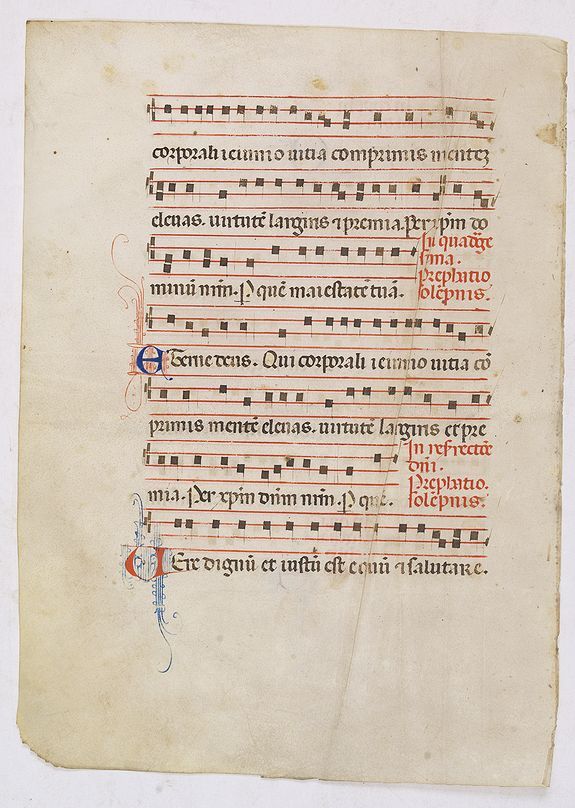 corporali ieiunio uitia comprimis mentez
eleuas. uirtutē largiris ⁊ premia. Per xp̄m do
minū nr̄m. P quē maiestatē tuā.
In quadrāge
sima.
Prephatio
solēpnis.
Eterne deus. Qui corporali ieiunio uitia cō
primis mentē eleuas. uirtutē largiris et pre
mia. Per xp̄m dn̄m nr̄m. P quē.
In resrectiōe
dn̄i.
Prephatio.
solēpnis.
Uere dignū et iustū est equū ⁊ salutare.